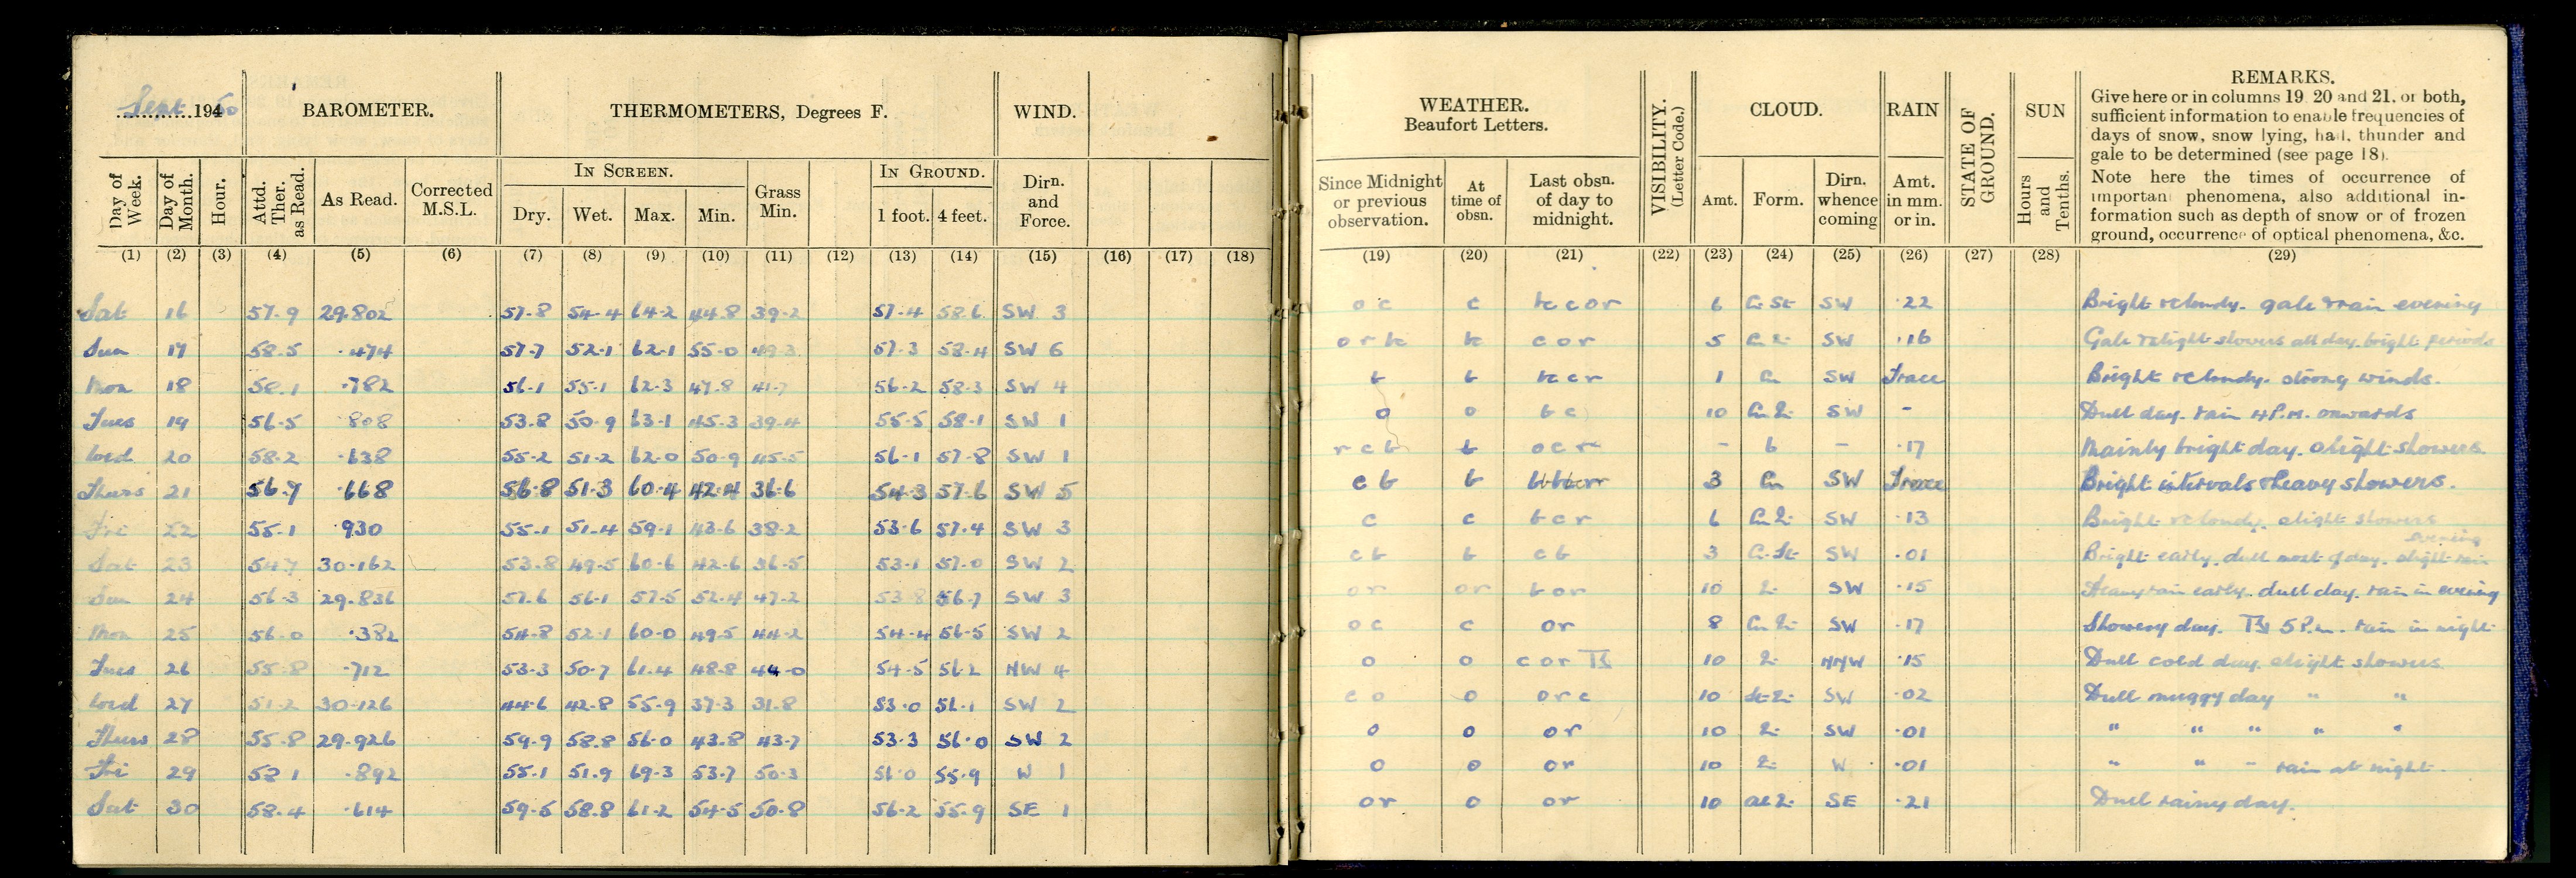 Sept. 1950 BAROMETER. THERMOMETERS, Degrees F. WIND.
IN SCREEN. IN GROUND.
Day of Week. Day of Month. Hour. Attd. Ther. as Read. As Read. Corrected M.S.L. Dry. Wet. Max. Min. Grass Min. 1 foot. 4 feet. Dirn. and Force.
(1) (2) (3) (4) (5) (6) (7) (8) (9) (10) (11) (12) (13) (14) (15) (16) (17) (18)
Sat 16 57.9 29.802 57.8 54.4 64.2 44.8 39.2 57.4 58.6 SW 3
Sun 17 58.5 .474 57.7 52.1 62.1 55.0 49.3 57.3 58.4 SW 6
Mon 18 58.1 .782 56.1 55.1 62.3 47.8 41.7 56.2 58.3 SW 4
Tues 19 56.5 .808 53.8 50.9 63.1 45.3 39.4 55.5 58.1 SW 1
Wed 20 58.2 .638 55.2 51.2 62.0 50.9 45.5 56.1 57.8 SW 1
Thurs 21 56.7 .668 56.8 51.3 60.4 42.4 36.6 54.3 57.6 SW 5
Fri 22 55.1 .930 55.1 51.4 59.1 43.6 38.2 53.6 57.4 SW 3
Sat 23 54.7 30.162 53.8 49.5 60.6 42.6 36.5 53.1 57.0 SW 2
Sun 24 56.3 29.836 57.6 56.1 57.5 52.4 47.2 53.8 56.7 SW 3
Mon 25 56.0 .382 54.8 52.1 60.0 49.5 44.2 54.4 56.5 SW 2
Tues 26 55.8 .712 53.3 50.7 61.4 48.8 44.0 54.5 56.2 NW 4
Wed 27 51.2 30.126 44.6 42.8 55.9 37.3 31.8 53.0 56.1 SW 2
Thurs 28 55.8 29.926 59.9 58.8 56.0 43.8 43.7 53.3 56.0 SW 2
Fri 29 58.1 .892 55.1 51.9 69.3 53.7 50.3 56.0 55.9 W 1
Sat 30 58.4 .614 59.5 58.8 61.2 54.5 50.8 56.2 55.9 SE 1
WEATHER. Beaufort Letters. VISIBILITY. (Letter Code.) CLOUD. RAIN STATE OF GROUND. SUN REMARKS.
Give here or in columns 19 20 and 21, or both,
sufficient information to enable frequencies of
days of snow, snow lying, hail, thunder and
gale to be determined (see page 18).
Note here the times of occurrence of
important phenomena, also additional in-
formation such as depth of snow or of frozen
ground, occurrence of optical phenomena, &c.
Since Midnight or previous observation. At time of obsn. Last obsn. of day to midnight. Amt. Form. Dirn. whence coming Amt. in mm. or in. Hours and Tenths.
(19) (20) (21) (22) (23) (24) (25) (26) (27) (28) (29)
o c c bc c o r 6 Cu St SW .22 Bright & cloudy. gale & rain evening
o r bc bc c o r 5 SW .16 Gale & slight showers all day. bright periods
b b bc c r 1 Cu SW Trace Bright & cloudy. strong winds.
o o b c 10 SW - Dull day. rain 4 P.M. onwards
r c b b o c r - b - .17 Mainly bright day. slight showers.
c b b 3 Cu SW Trace Bright intervals & heavy showers.
c c b c r 6 SW .13 Bright & cloudy. slight showers
c b b c b 3 SW .01 Bright early. dull most of day. slight rain evening
o r o r b o r 10 SW .15 Heavy rain early. dull day. rain in evening
o c c o r 8 SW .17 Showery day. 5 P.m. rain in night
o o c o r 10 NNW .15 Dull cold day. slight showers.
c o o o r c 10 SW .02 Dull muggy day " "
o o o r 10 SW .01 " " " " "
o o o r 10 W .01 " " - rain at night.
o r o o r 10 SE .21 Dull rainy day.